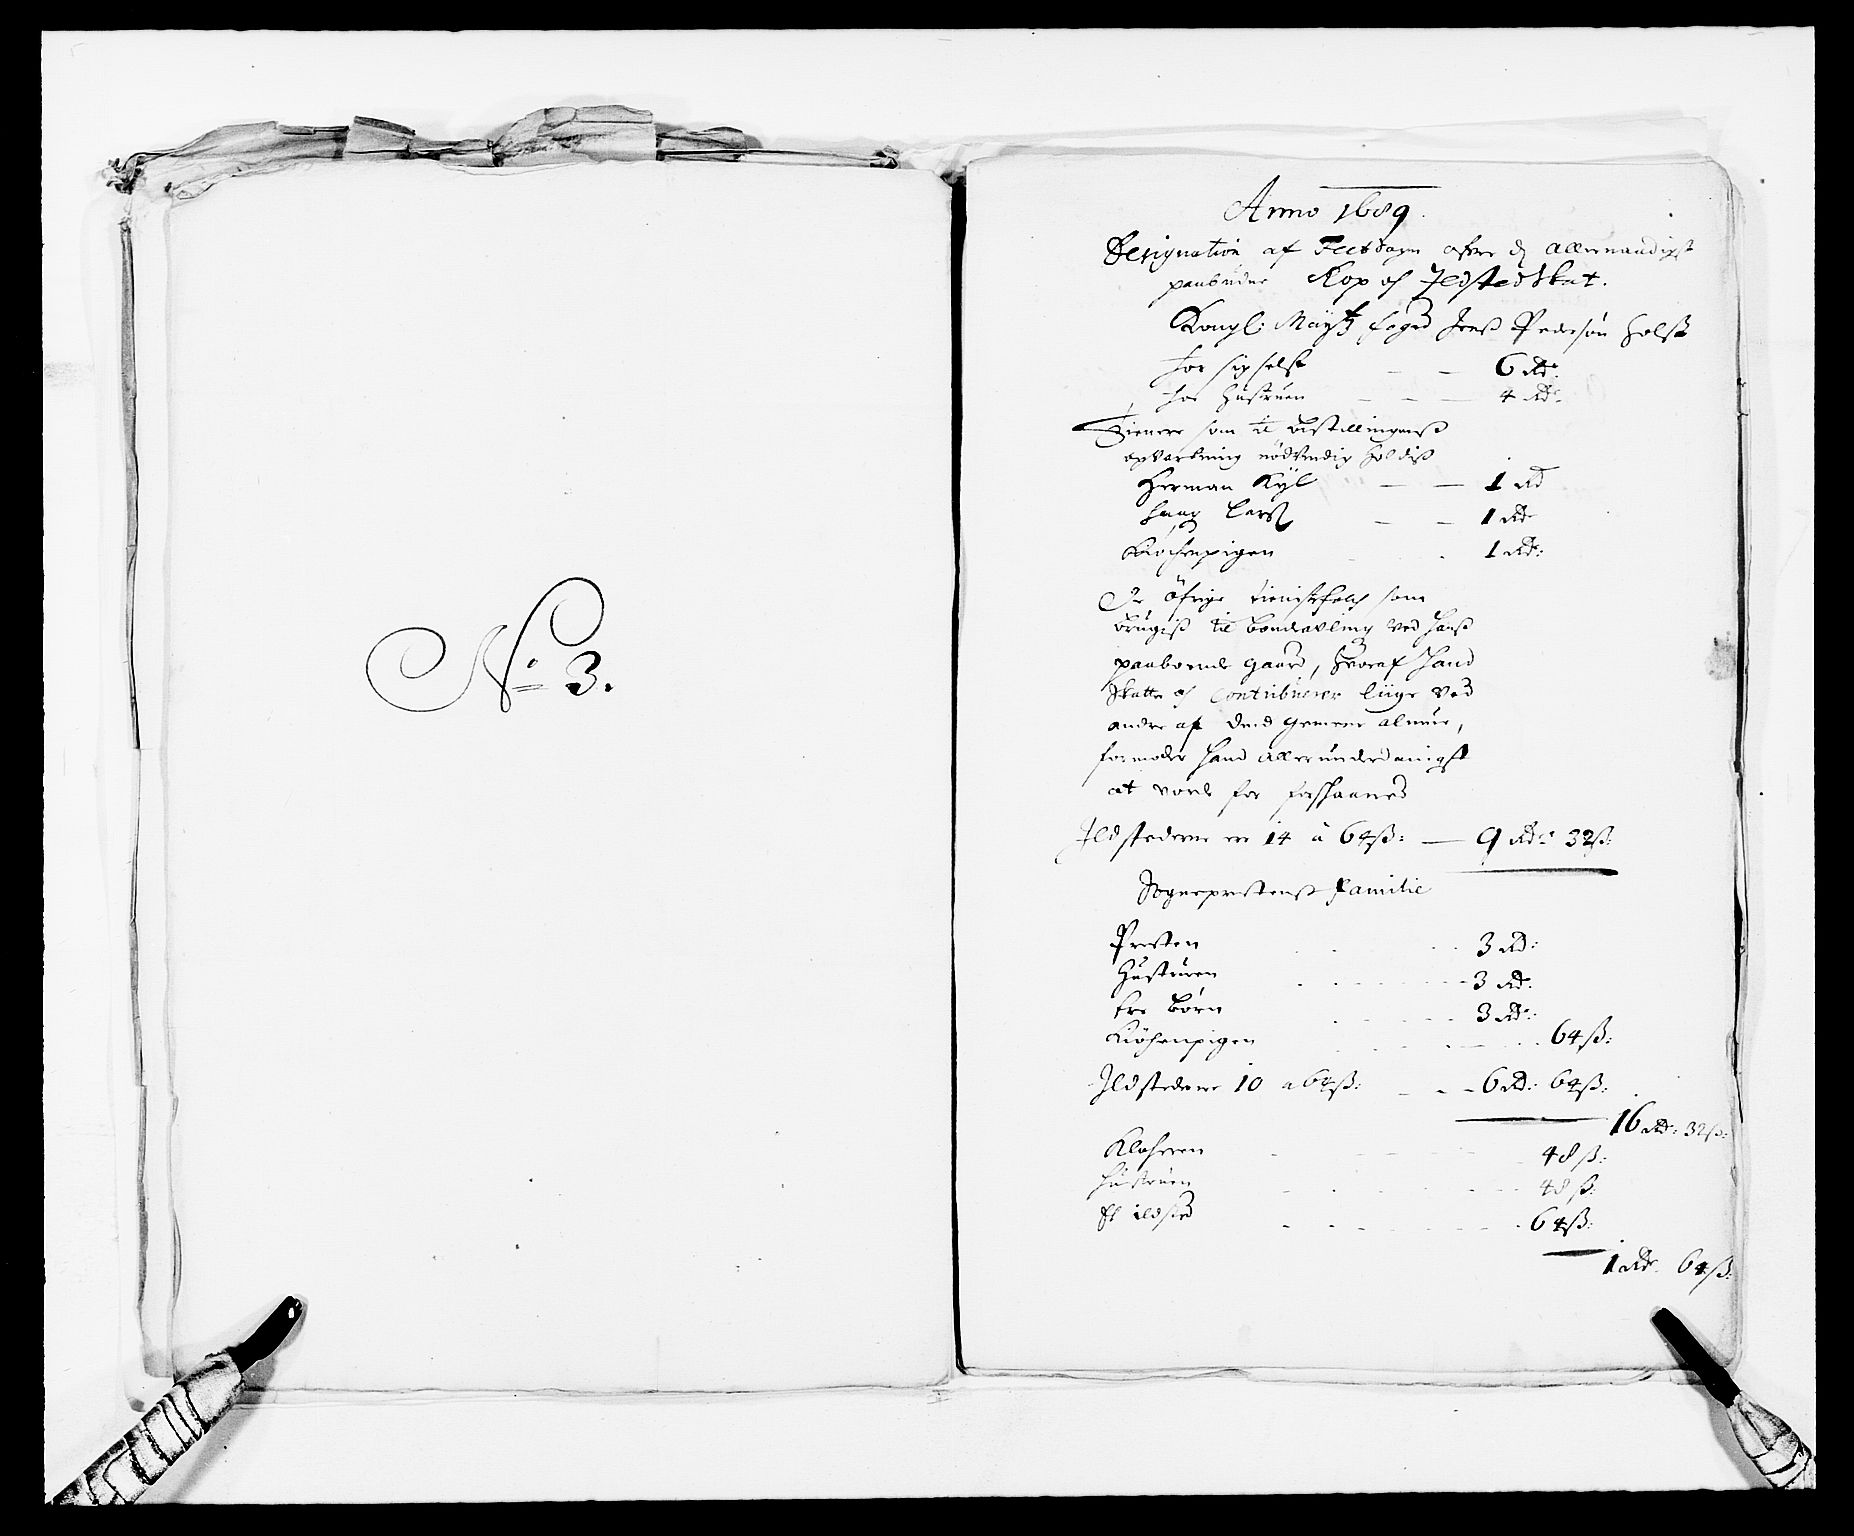 No 3.
Anno 1689.
Designation af efter d allernaadigst
paabudne Kop og Ildsted Skat.
Kongl: Maytz foged Jens Pedersøn Holst
for sig self — — 6 Rdr.
for Hustruen — — — 4 Rdr.
Tienere som til bestillingens
opvartning nødvendig holdis
Herman Kyl — — 1 Rd
Lars — — 1 Rdr
Kochepigen 1 Rdr:
De öfrige tienistfolch som
brugis til bondeavling ved hans
paaboende gaard, hvoraf hand
Skatter og Contribuerer liige ved
andre af dend gemene almue,
formoder hand allerunderdanigst
at vorde for forskaaned
Ildstederne er 14 a 64 ß: — 9 Rdr 32 ß:
Sogneprestens Familie
Presten 3 Rd:
Hustruen 3 Rd:
tre Børn 3 Rdr:
Kiöchenpigen 64 ß:
Ildstederne 10 a 64 ß: — 6 Rd: 64 ß:
16 Rdr: 32 ß:
Klocheren 48 ß:
Hustruen 48 ß:
Et ildsted 64 ß:
1 Rdr. 64 ß: